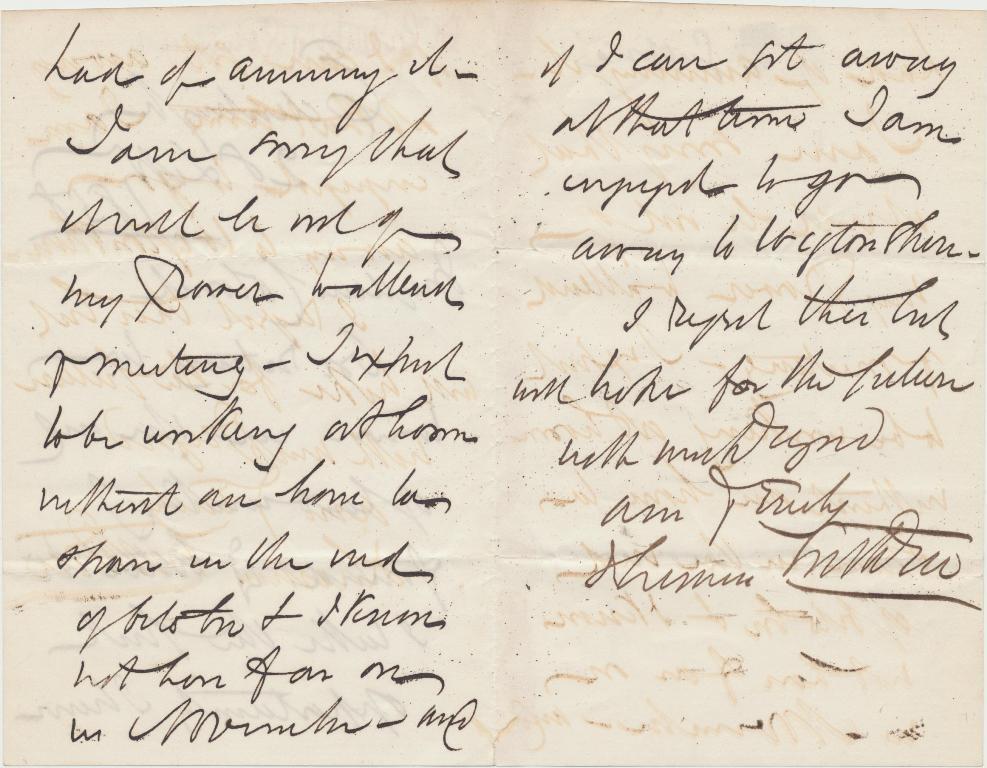 had of among it -
I am sorry that
it will be out of
my Power to attend
yr meeting - I expect
to be working at home
without an hour to
spare in the end
of October & I know
not how far on
in November - and
if I can get away
at that time I am
engaged to go
away to
I regret this but
will hope for the future
with much regard
am Yrs Truly